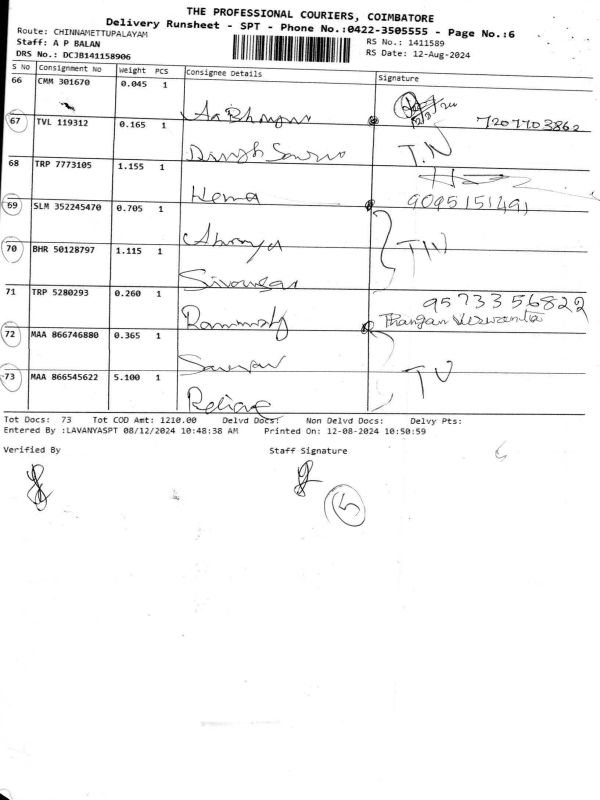 THE PROFESSIONAL COURIERS, COIMBATORE
Delivery Runsheet - SPT - Phone No.:0422-3505555 - Page No.:6
Route: CHINNAMETTUPALAYAM
Staff: A P BALAN
DRS No.: DCJB141158906
RS No.: 1411589
RS Date: 12-Aug-2024
S No Consignment No Weight PCS Consignee Details Signature
66 CMM 301670 0.045 1
67 TVL 119312 0.165 1 7207703862
68 TRP 7773105 1.155 1 T.N
Hema 9095151491
69 SLM 352245470 0.705 1
70 BHR 50128797 1.115 1
71 TRP 5280293 0.260 1 9573356822
72 MAA 866746880 0.365 1
73 MAA 866545622 5.100 1
Tot Docs: 73 Tot COD Amt: 1210.00 Delvd Docs: Non Delvd Docs: Delvy Pts:
Entered By :LAVANYASPT 08/12/2024 10:48:38 AM Printed On: 12-08-2024 10:50:59
Verified By Staff Signature
5